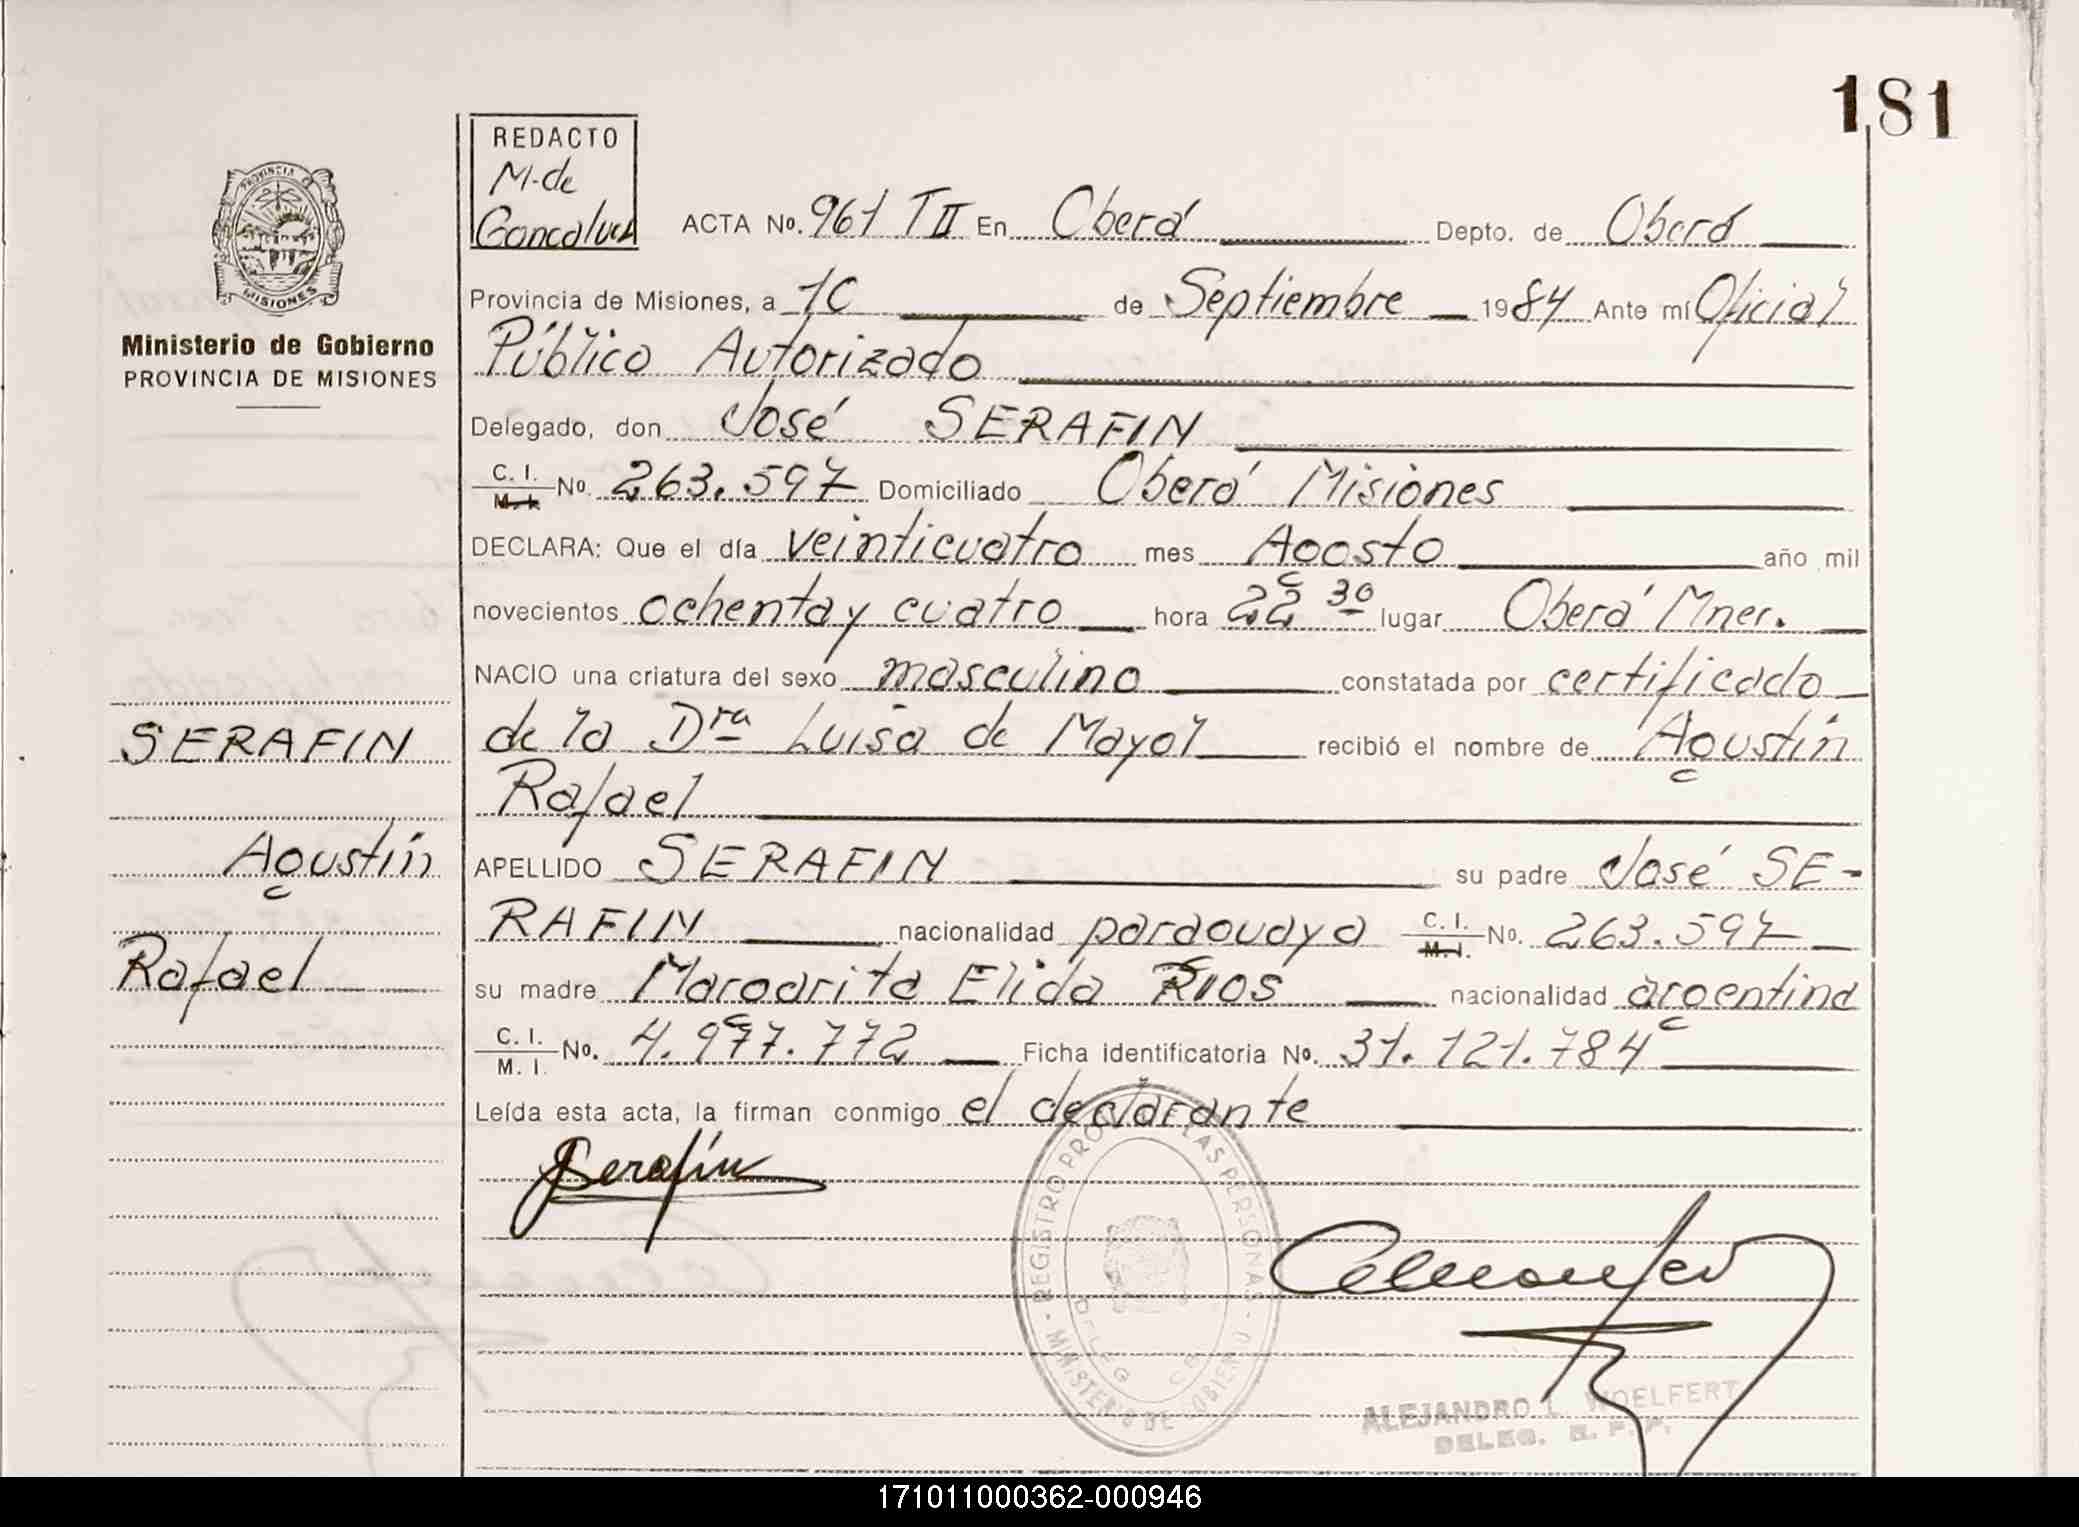 181
REDACTO
M. de
Goncalves
PROVINCIA
MISIONES
Ministerio de Gobierno
PROVINCIA DE MISIONES
ACTA No. 961 T II En Oberá Depto. de Oberá
Provincia de Misiones, a 10 de Septiembre 1984 Ante mí Oficial
Público Autorizado
Delegado, don José SERAFIN
C. I. M. I. No. 263.597 Domiciliado Oberá Misiones
DECLARA: Que el día veinticuatro mes Agosto año mil
novecientos ochenta y cuatro hora 22 30 lugar Oberá Mnes.
NACIO una criatura del sexo masculino constatada por certificado
de la Dra Luisa de Mayol recibió el nombre de Agustín
Rafael
SERAFIN
Agustín
Rafael
APELLIDO SERAFIN su padre José SE-
RAFIN nacionalidad paraguaya C. I. M. I. No. 263.597
su madre Margarita Elida RIOS nacionalidad argentina
C. I. M. I. No. 4.977.772 Ficha identificatoria No. 31.121.784
Leída esta acta, la firman conmigo el declarante
JSerafin
REGISTRO LAS PERSONAS
MINISTERIO DE GOBIERNO
ALEJANDRO L. WOELFERT
DELEG. R. P. P.
171011000362-000946